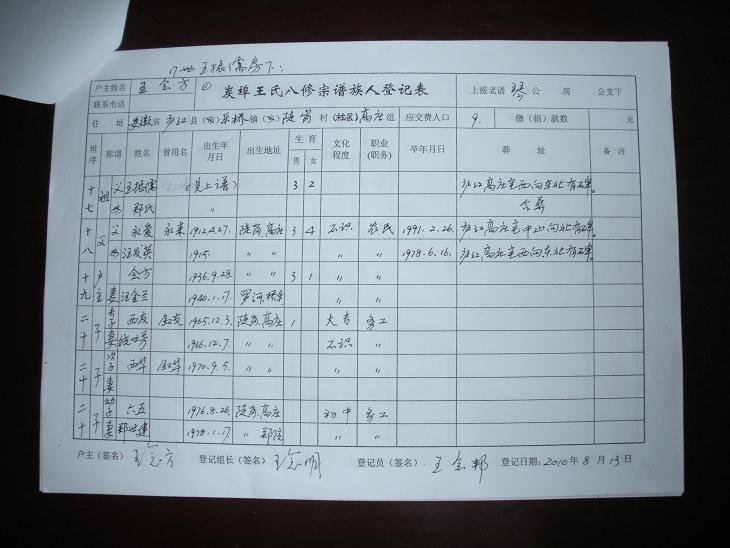 17世王振儒房下：
户主姓名 王金方 ① 炭埠王氏八修宗谱族人登记表 上接老谱 公 房 公支下
联系电话
住 址 安徽省庐江县(市)乐桥镇(乡)陡岗村(社区)高庄组 应交费人口 9. 缴(捐)款数 元
世序 称谓 姓名 曾用名 出生年月日 出生地址 生育 男 女 文化程度 职业(职务) 卒年月日 葬 址 备 注
十七 祖 父 王振儒 (见上谱) 3 2 庐江高庄宅西向东北有碑。
母 郑氏 〃 合葬
十八 父 父 永爱 永来 1912.4.27. 陡岗.高庄 3 4 不识 农民 1991.2.26. 庐江高庄宅中山向北有碑。
母 汪发英 1915. 〃 〃 〃 〃 1978.6.16. 庐江高庄宅西向东北有碑。
十九 户主 金方 1936.9.28. 〃 〃 3 1 〃 〃
妻 汪金兰 1940.1.17. 罗河. 〃 〃
二十 子 长子 西友 金友 1965.12.3. 陡岗.高庄 1 大专 务工
妻 1966.12.7. 不识 〃
二十 子 次子 西华 金华 1970.9.5. 〃 〃 〃 〃
妻
二十 子 幼子 六五 1976.8.26. 陡岗.高庄 初中 务工
妻 郑世建 1978.1.17. 〃 郑院 〃 〃
户主（签名） 王金方 登记组长（签名） 王金明 登记员（签名）. 王金邦 登记日期：2010年8月13日